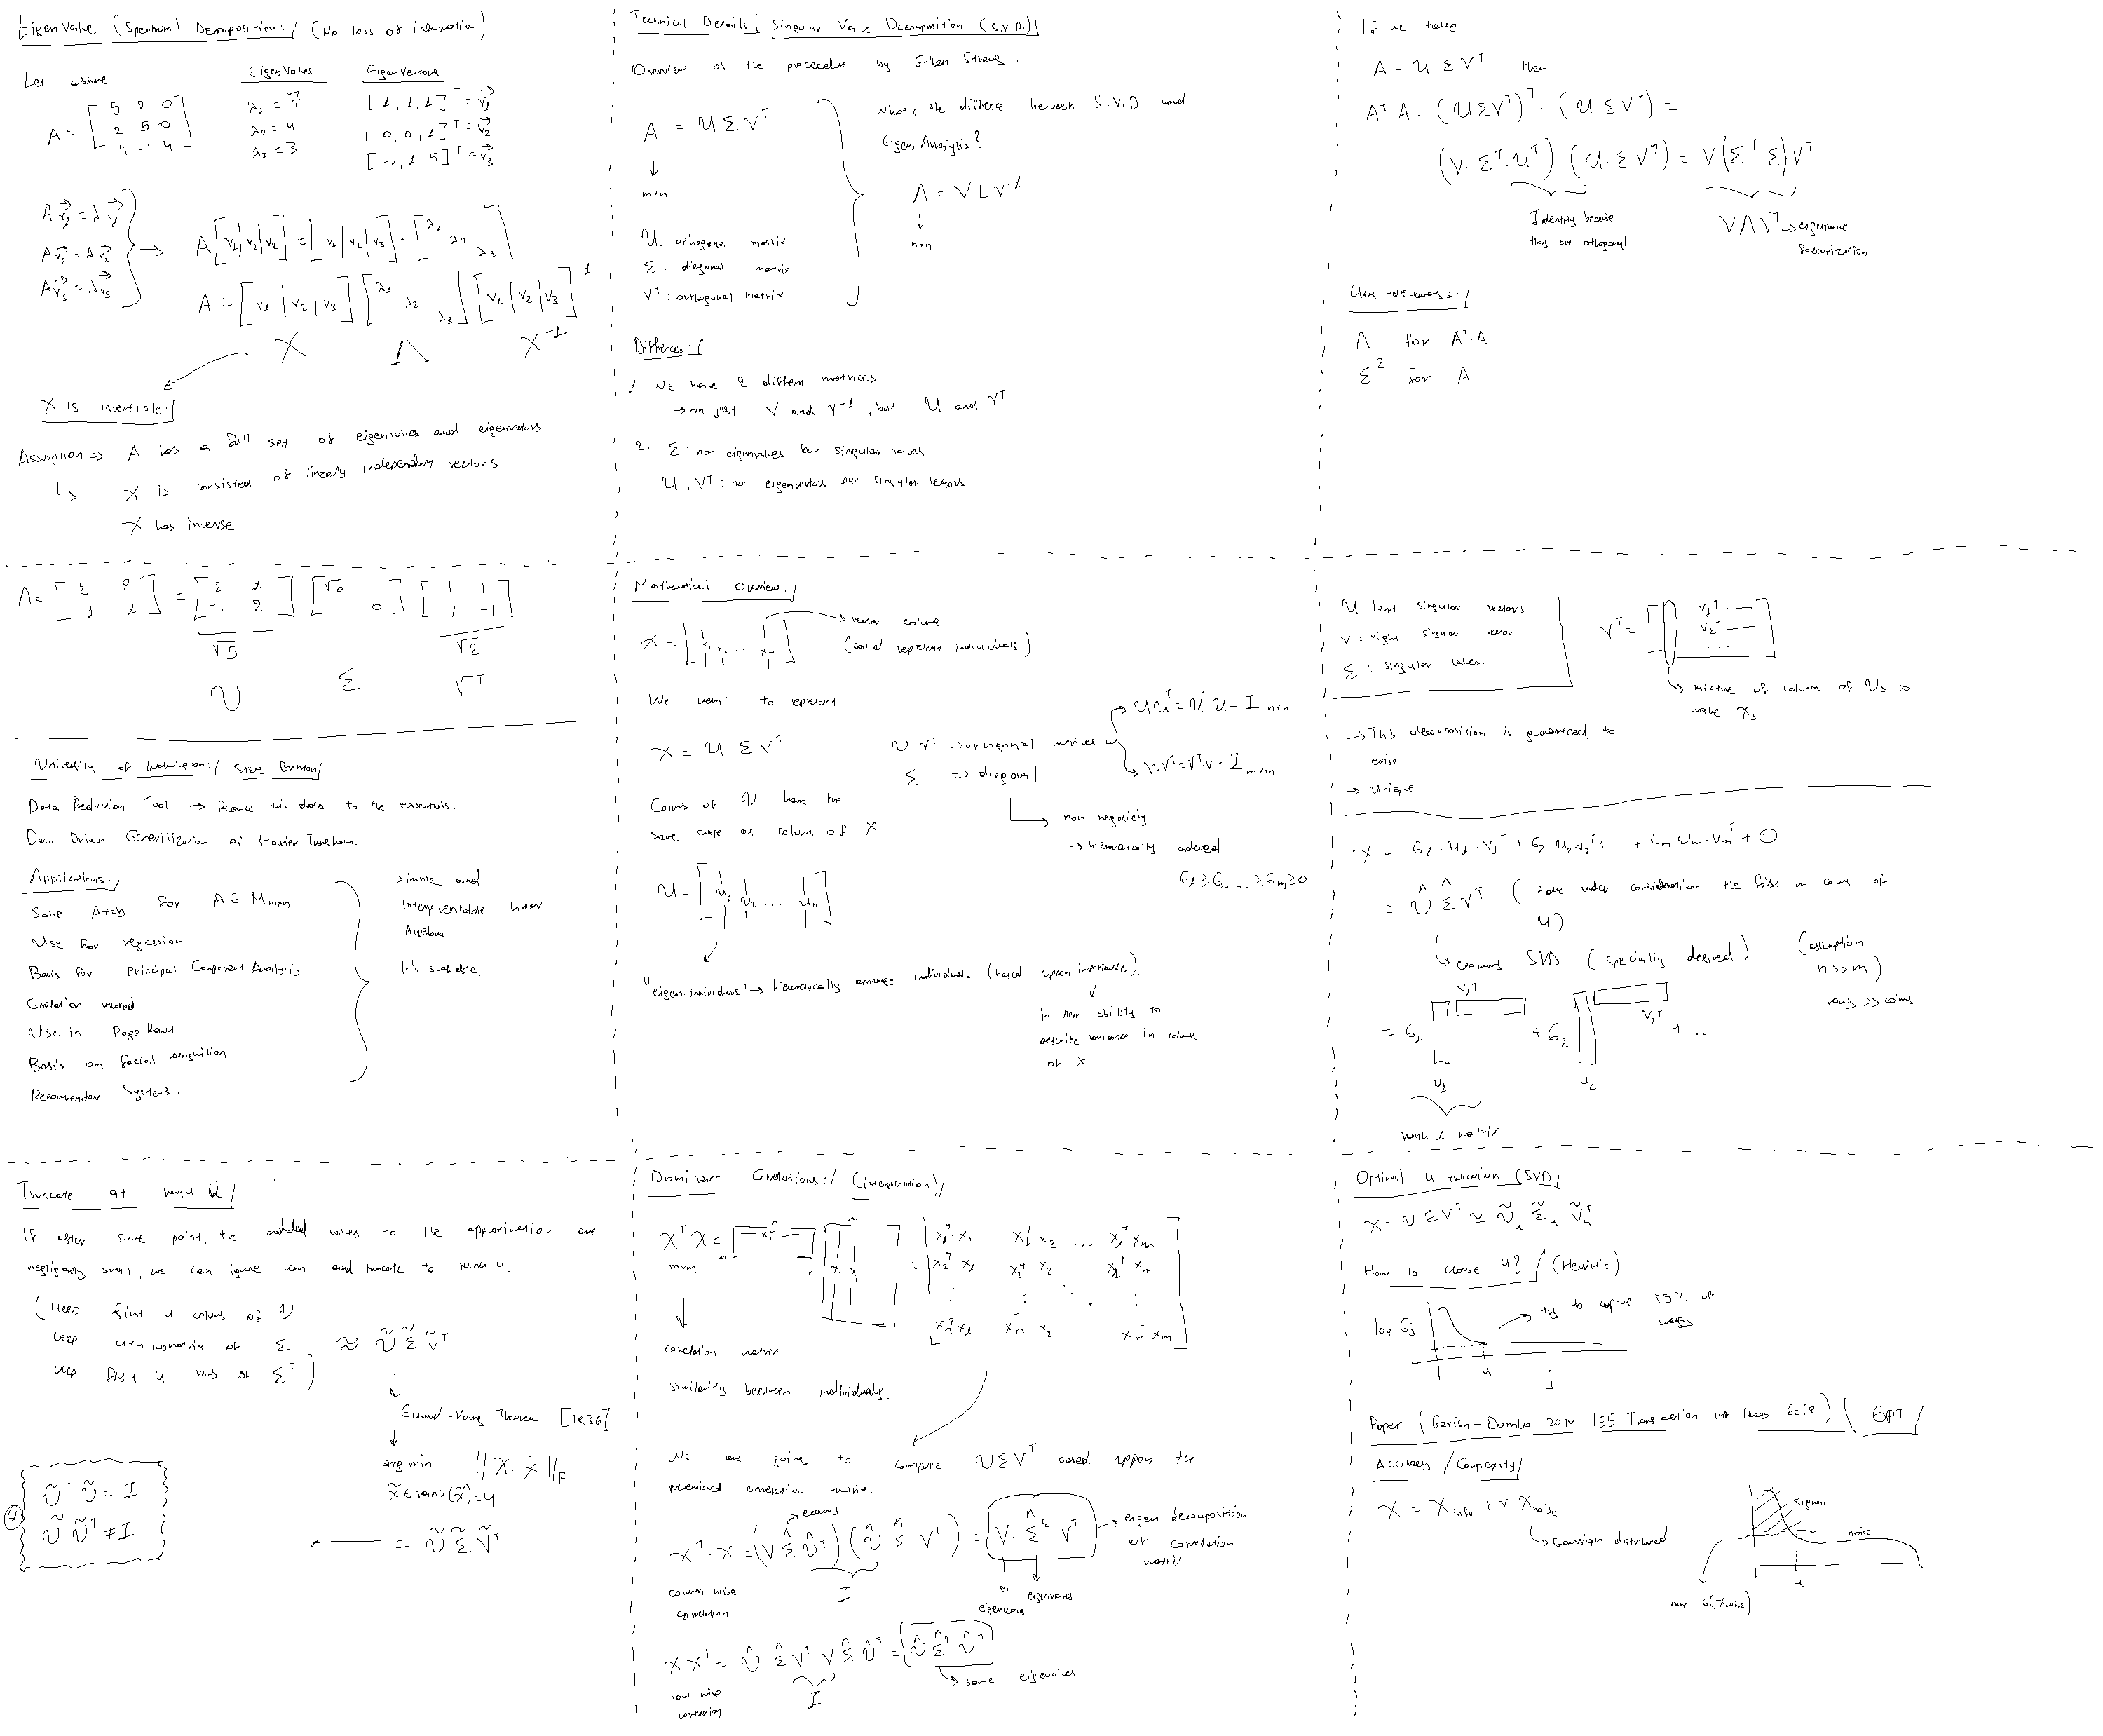 Eigen Value (Spectrum) Decomposition:/ (No loss of information)
Let assume
A = [5 2 0
2 5 0
4 -1 4]
Eigen Values
λ1 = 7
λ2 = 4
λ3 = 3
Eigen Vectors
[1, 1, 1]^T = v1
[0, 0, 1]^T = v2
[-1, 1, 5]^T = v3
A v1 = λ v1
A v2 = λ v2
A v3 = λ v3
→ A [v1 | v2 | v2] = [v1 | v2 | v3] · [λ1 λ2 λ3]
A = [v1 | v2 | v3] [λ1 λ2 λ3] [v1 | v2 | v3]^-1
X Λ X^-1
X is invertible:/
Assumption => A has a full set of eigenvalues and eigenvectors
↳ X is consisted of linearly independent vectors
X has inverse.
Technical Details/ Singular Value Decomposition (S.V.D.)/
Overview of the procedure by Gilbert Strang.
A = U Σ V^T
↓
m×n
U: orthogonal matrix
Σ: diagonal matrix
V^T: orthogonal matrix
What's the diffence between S.V.D. and
Eigen Analysis?
A = V L V^-1
↓
n×n
Diffences:/
1. We have 2 diffent matrices
→ not just V and V^-1, but U and V^T
2. Σ: not eigenvalues but singular values
U, V^T: not eigenvectors but singular vectors
If we take
A = U Σ V^T then
A^T·A = (U Σ V^T)^T · (U·Σ·V^T) =
(V·Σ^T·U^T)·(U·Σ·V^T) = V·(Σ^T·Σ)V^T
Identity because
they are orthogonal
V Λ V^T => eigenvalue
factorization
Key take-aways:/
Λ for A^T·A
Σ^2 for A
A = [2 2
1 1] = [2 1
-1 2] [√10
0] [1 1
1 -1]
√5 √2
U Σ V^T
University of Washington:/ Steve Brunton/
Data Reduction Tool. → Reduce this data to the essentials.
Data Driven Generilization of Fourier Transform.
Applications:/
Solve Ax=b for A ∈ M m×n
Use for regression.
Basis for Principal Component Analysis
Corelation related
Use in Page Rank
Basis on facial recognition
Recomender Systems.
simple and
Interpretable Linear
Algebra
It's scalable.
Mathematical Overview:/
X = [x1 x2 ... xm]
→ vector column
(could represent individuals)
We want to represent
X = U Σ V^T
U, V^T => orthogonal matrices
Σ => diagonal
U U^T = U^T·U = I n×n
V·V^T = V^T·V = I m×m
↳ non-negatively
↳ hierarcically ordered
σ1 ≥ σ2 ... ≥ σm ≥ 0
Colums of U have the
same shape as colums of X
U = [u1 u2 ... un]
"eigen-individuals" → hierarcically arrange individuals (based uppon importance).
in their ability to
describe variance in colums
of X
U: left singular vectors
V: right singular vector
Σ: singular values.
V^T = [v1^T
v2^T
...]
↳ mixture of colums of Us to
make Xs
→ This decomposition is guaranteed to
exist
→ Unique.
X = σ1·u1·v1^T + σ2·u2·v2^T + ... + σm um·vm^T + 0
= Û Σ̂ V^T (take under consideration the first m colums of
U)
↳ economy SVD (specially desired).
(assumption
n>>m)
rows >> colums
= σ1 v1^T + σ2· v2^T + ...
u1 u2
rank 1 matrix
Truncate at rank k/
If after some point, the added values to the approximation are
negligably small, we can ignore them and truncate to rank k.
(keep first k colums of U
keep k×k submatrix of Σ
keep first k rows of Σ^T)
≈ Ũ Σ̃ Ṽ^T
↓
Eckard-Young Theorem [1936]
↓
arg min ||X - X̃||F
X̃ ∈ rank(X̃)=k
= Ũ Σ̃ Ṽ^T
Ũ^T Ũ = I
Ũ Ũ^T ≠ I
Dominant Corelations:/ (interpretation)/
X^T X =
m×m
n
m x1^T
m
n x1 x2
= [x1^T·x1 x1^T x2 ... x1^T·xm
x2^T·x1 x2^T x2 x2^T·xm
xm^T x1 xm^T x2 xm^T xm]
↓
corelation matrix
similarity between individuals.
We are going to compute U Σ V^T based uppon the
corelation matrix.
economy
X^T·X = (V·Σ̂ Û^T)(Û·Σ̂·V^T) = V·Σ̂^2 V^T
→ eigen decomposition
of corelation
matrix
I
column wise
corelation
eigenvectors
eigenvalues
X X^T = Û Σ̂ V^T V Σ̂ Û^T = Û Σ̂^2·Û^T
I
↳ same eigenvalues
row wise
corelation
Optimal k truncation (SVD)/
X = U Σ V^T ≃ Ũk Σ̃k Ṽk^T
How to choose k?/ (Heuristic)
log σj
→ try to captue 99% of
energy
k
j
Paper (Gavish-Donoho 2014 IEE Transaction Inf Theory 60(8)) / OPT/
Accuracy / Complexity/
X = Xinfo + γ·Xnoise
↳ Gaussian distributed
signal
noise
k
max σ(Xnoise)